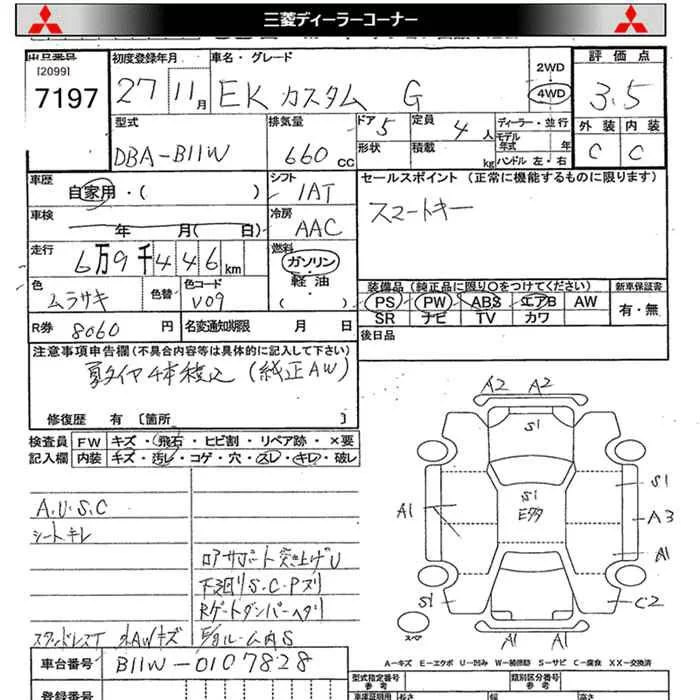 三菱ディーラーコーナー
[2099]
7197
初度登録年月
27 11月
車名・グレード
EK カスタム G
2WD
4WD
評価点
3.5
外装 内装
C C
型式
DBA-B11W
排気量
660 cc
ドア 5
形状
定員 4 人
積載 kg
ディーラー・並行
モデル年式 年
ハンドル 左・右
車歴
自家用・( )
シフト
IAT
セールスポイント (正常に機能するものに限ります)
スマートキー
車検
年 月( 日)
冷房
AAC
走行
6万9千446km
燃料
ガソリン
軽油
( )
色
ムラサキ
色替
色コード
V09
装備品 (純正品に限り○をつけてください)
PS PW ABS エアB AW
SR ナビ TV カワ
新車保証書
有・無
R券 8060 円
名変通知期限 月 日
後日品
注意事項申告欄(不具合内容等は具体的に記入して下さい)
夏タイヤ4本積込 (純正AW)
修復歴 有 [箇所 ]
検査員記入欄
FW キズ・飛石・ヒビ割・リペア跡・×要
内装 キズ・汚レ・コゲ・穴・スレ・キレ・破レ
A.U.S.C
シートキレ
ロアサポート突き上げU
下廻りS.C.Pズリ
Rゲートダンパーヘタリ
スタッドレスT
AWキズ
ルーム内S
A2 A2
S1
S1
S1
Eタタ
A1
A3
A1
S1
C2
A1 A1
スペア
A-キズ E-エクボ U-凹み W-補修跡 S-サビ C-腐食 XX-交換済
車台番号
B11W-0107828
型式指定番号
参考
類別区分番号
参考
登録番号
車庫証明用
参考
長さ
幅
高さ